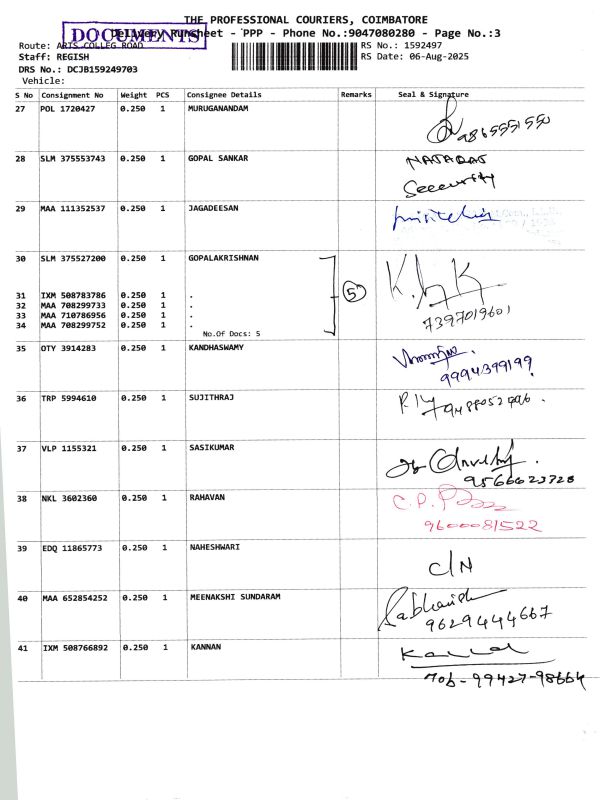 THE PROFESSIONAL COURIERS, COIMBATORE
DOCUMENTS
Delivery Runsheet - PPP - Phone No.:9047080280 - Page No.:3
Route: ARTS COLLEG ROAD
RS No.: 1592497
Staff: REGISH
RS Date: 06-Aug-2025
DRS No.: DCJB159249703
Vehicle:
S No Consignment No Weight PCS Consignee Details Remarks Seal & Signature
27 POL 1720427 0.250 1 MURUGANANDAM
9865551550
28 SLM 375553743 0.250 1 GOPAL SANKAR
Security
29 MAA 111352537 0.250 1 JAGADEESAN
30 SLM 375527200 0.250 1 GOPALAKRISHNAN
5
31 IXM 508783786 0.250 1 .
32 MAA 708299733 0.250 1 .
33 MAA 710786956 0.250 1 .
34 MAA 708299752 0.250 1 .
7397019601
No.Of Docs: 5
35 OTY 3914283 0.250 1 KANDHASWAMY
9994399199
36 TRP 5994610 0.250 1 SUJITHRAJ
37 VLP 1155321 0.250 1 SASIKUMAR
9566623728
38 NKL 3602360 0.250 1 RAHAVAN
C.P.
9600081522
39 EDQ 11865773 0.250 1 NAHESHWARI
C/N
40 MAA 652854252 0.250 1 MEENAKSHI SUNDARAM
9629444667
41 IXM 508766892 0.250 1 KANNAN
Mob - 99427-98664